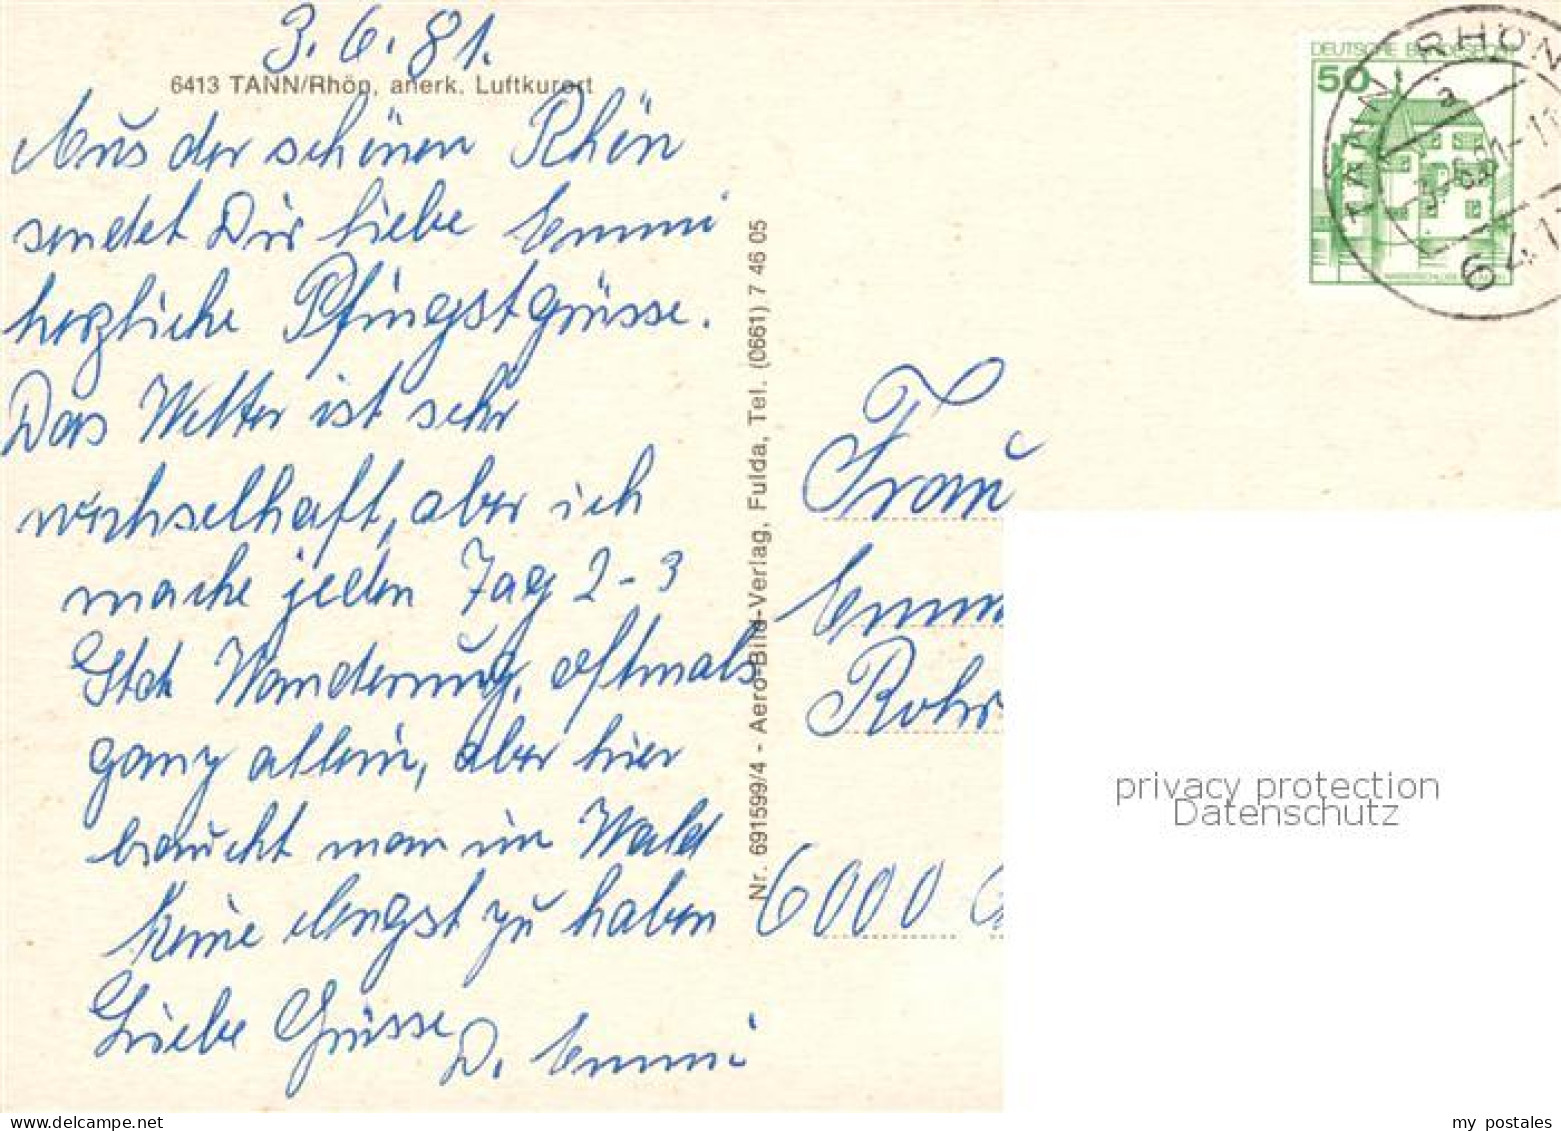 3.6.81.
6413 TANN/Rhön, anerk. Luftkurort
Aus der schönen Rhön
sendet Dir liebe Emmi
herzliche Pfingstgrüsse.
Das Wetter ist sehr
wechselhaft, aber ich
mache jeden Tag 2-3
Std Wanderung, oftmals
ganz allein, aber hier
braucht man im Wald
keine Angst zu haben
Liebe Grüsse
D. Emmi
Nr. 691599/4 - Aero-Bild-Verlag, Fulda, Tel. (0661) 7 46 05
DEUTSCHE BUNDESPOST
50
TANN RHÖN
a
Frau
Emm
Rohr
6000
privacy protection
Datenschutz
my postales